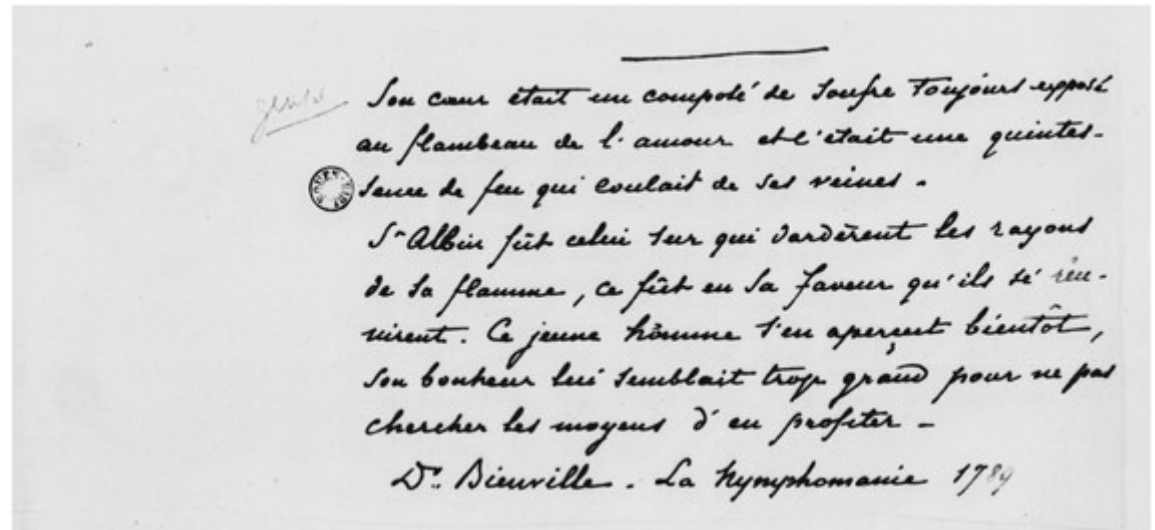 Son cœur était un composé de soufre toujours exposé
au flambeau de l'amour et c'était une quintes-
sence de feu qui coulait de ses veines.
St Albin fût celui sur qui dardèrent les rayons
de sa flamme, ce fût en sa faveur qu'ils se réu-
nirent. Ce jeune hômme s'en aperçut bientôt,
son bonheur lui semblait trop grand pour ne pas
chercher les moyens d'en profiter -
Dr. Bienville. La Nymphomanie 1789